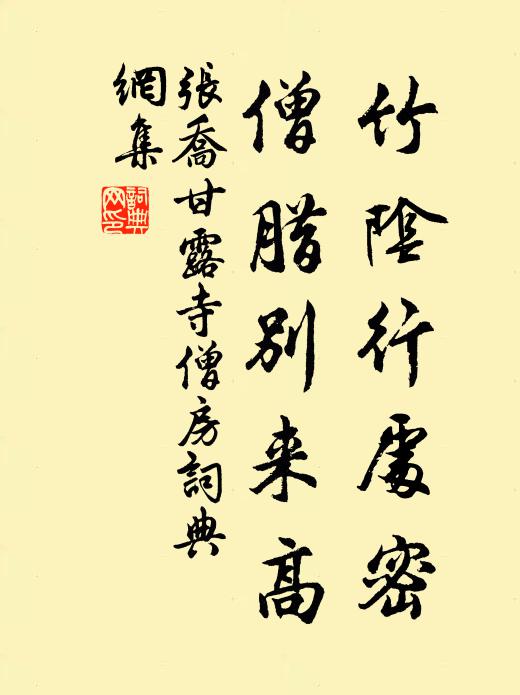 竹陰行處密
僧腊別来高
張喬甘露寺僧房詞典
網集
詞典
网印